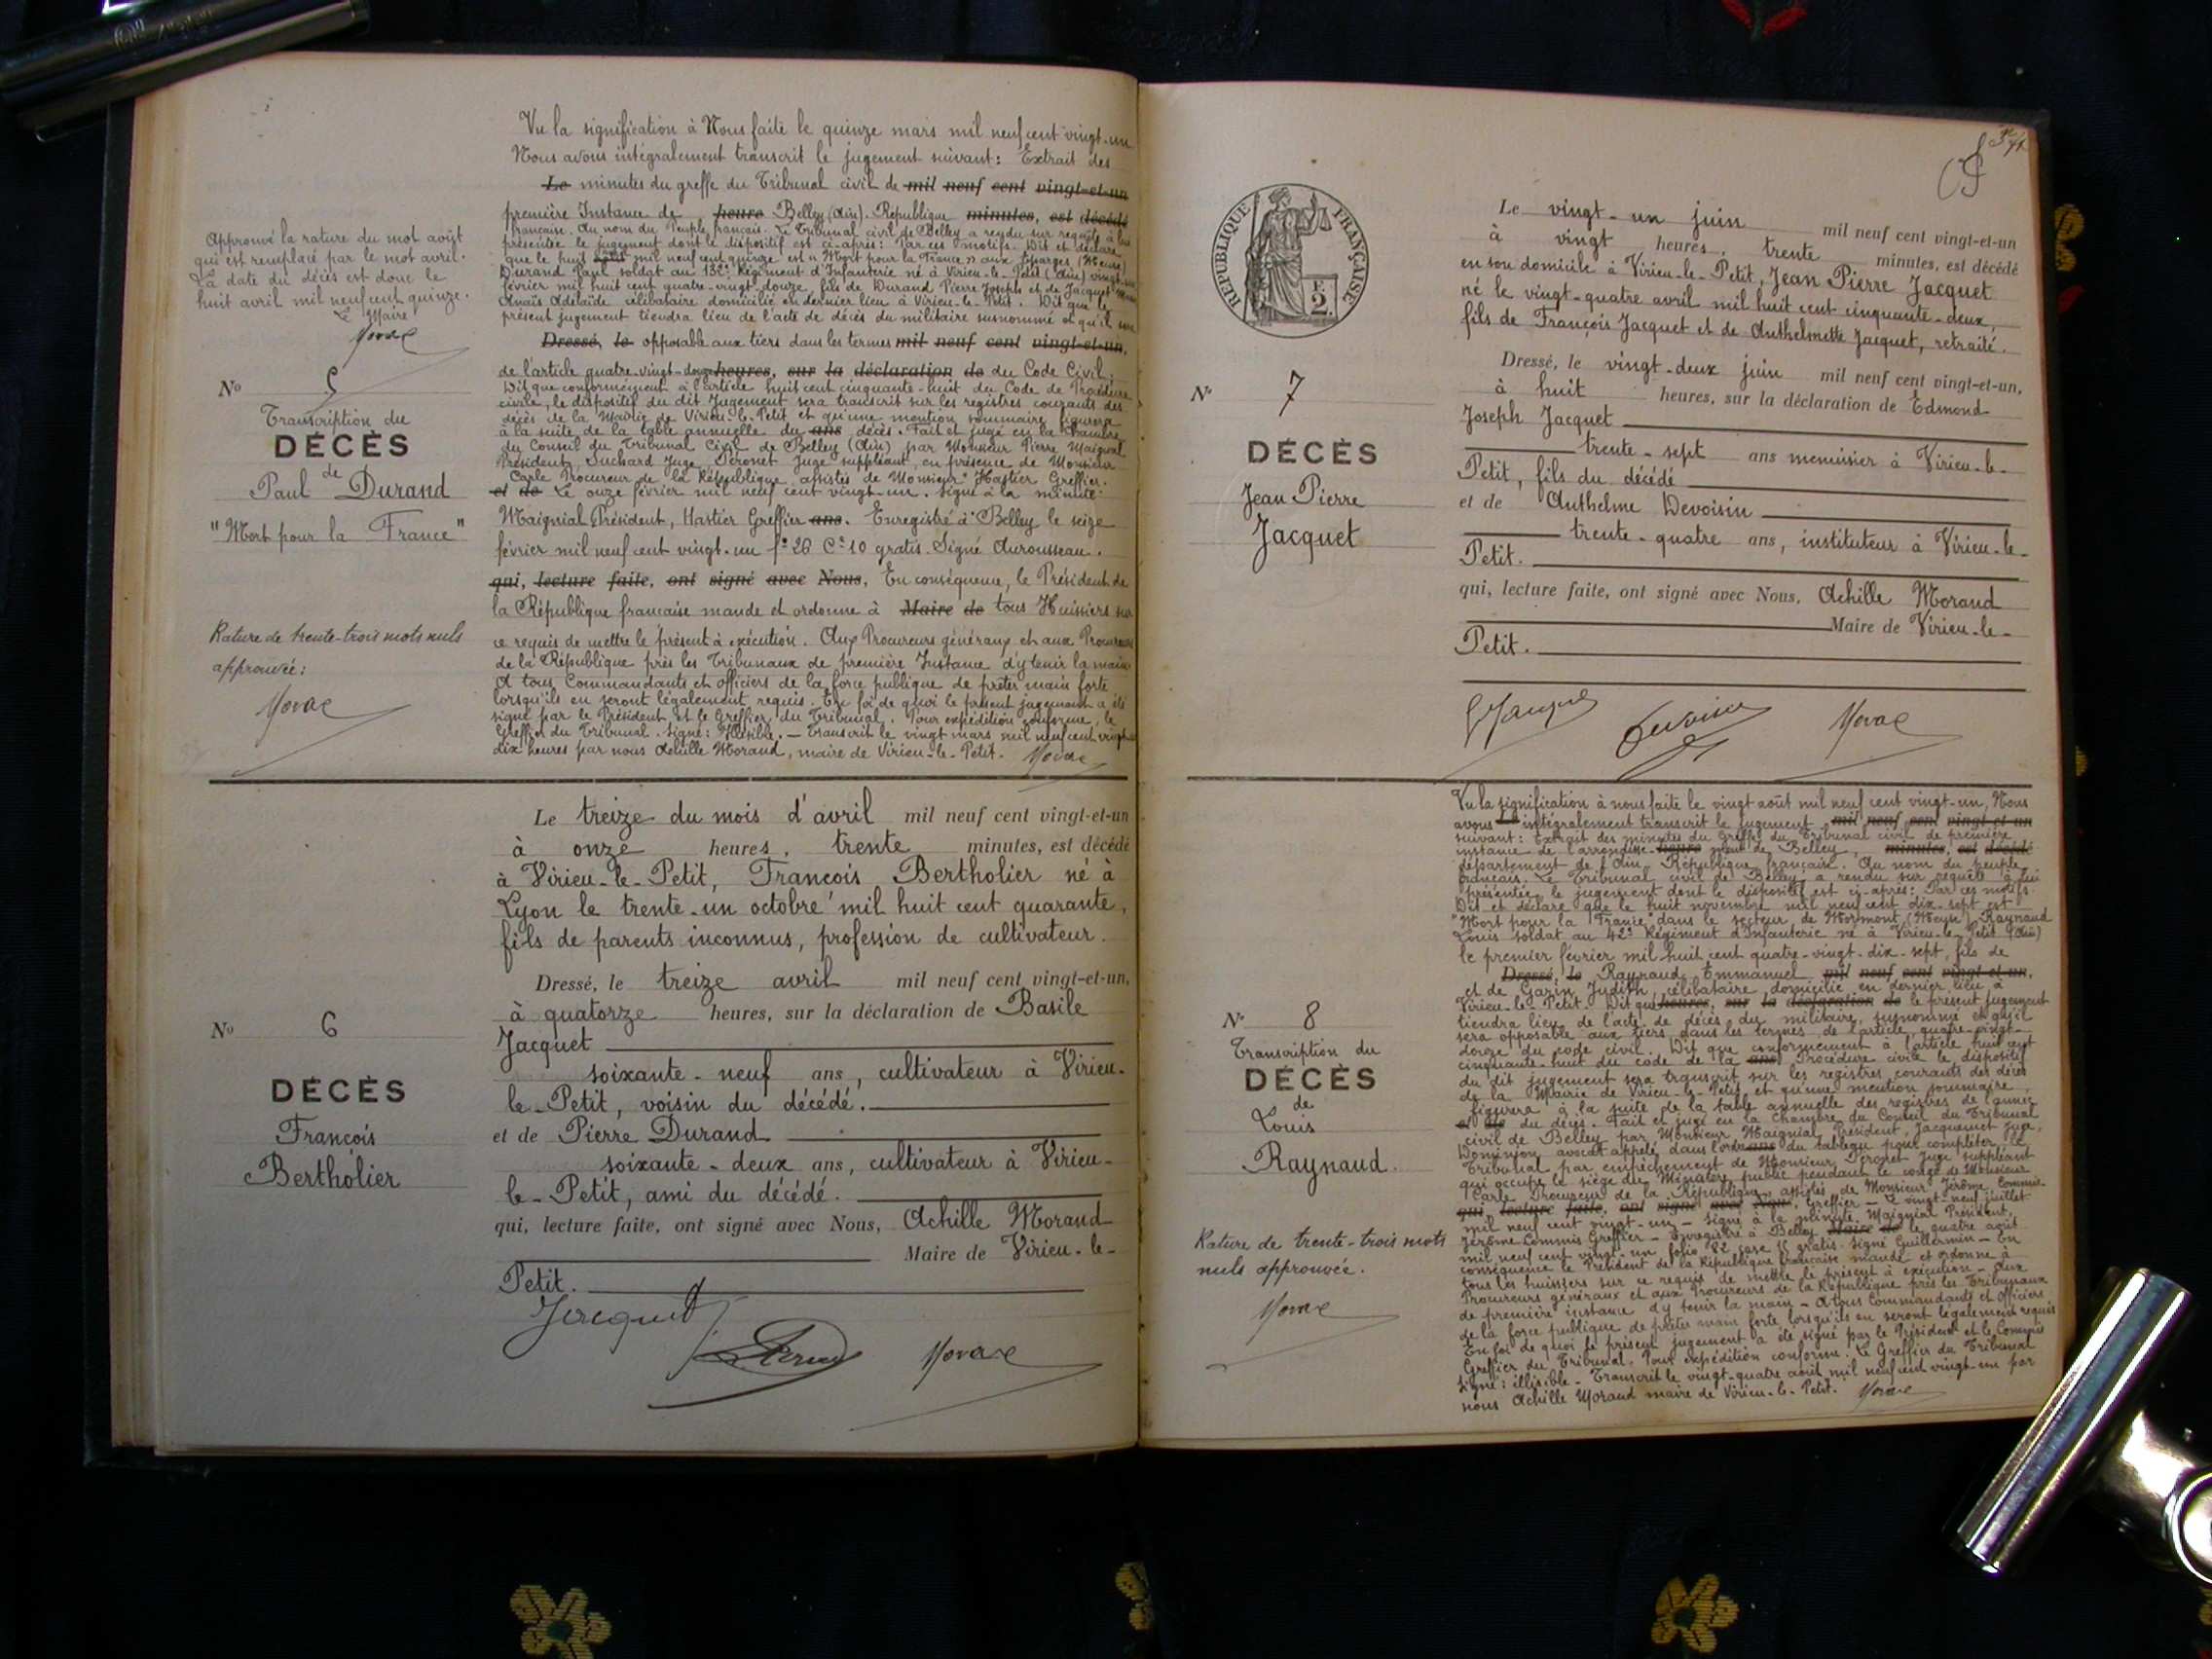 Vu la signification à Nous faite le quinze mars mil neuf cent vingt-un
Nous avons intégralement transcrit le jugement suivant : Extrait des
Le minutes du greffe du Tribunal civil de mil neuf cent vingt-et-un
première Instance de heure Belley (Ain). République minutes, est décédé
française. Au nom du Peuple français. Le Tribunal civil de Belley a rendu sur requête à lui
présentée le jugement dont le dispositif est ci-après : Par ces motifs. Dit et déclare
que le huit août mil neuf cent quinze est « Mort pour la France » aux Eparges (Meuse)
Durand Paul soldat au 132e Régiment d'Infanterie né à Virieu-le-Petit (Ain) vingt-
février mil huit cent quatre-vingt-douze, fils de Durand Pierre Joseph et de Jacquet
Anaïs Adelaïde célibataire domicilié en dernier lieu à Virieu-le-Petit. Dit que le
présent jugement tiendra lieu de l'acte de décès du militaire susnommé et qu'il sera
Dressé, le opposable aux tiers dans les termes mil neuf cent vingt-et-un,
de l'article quatre-vingt-douze heures, sur la déclaration de du Code Civil.
Dit que conformément à l'article huit cent cinquante-huit du Code de Procédure
civile, le dispositif du dit Jugement sera transcrit sur les registres courants des
décès de la Mairie de Virieu-le-Petit et qu'une mention sommaire figurera
à la suite de la table annuelle du ans décès. Fait et jugé en la Chambre
du Conseil du Tribunal Civil de Belley (Ain) par Monsieur Pierre Maignial
Président, Suchard Juge, Peronet Juge suppléant, en présence de Monsieur
Carle Procureur de la République, assistés de Monsieur Hastier Greffier.
et de Le onze février mil neuf cent vingt-un. Signé à la minute :
Maignial Président, Hastier Greffier ans. Enregistré à Belley le seize
février mil neuf cent vingt-un f° 26 C° 10 gratis. Signé Aurousseau.
qui, lecture faite, ont signé avec Nous, En conséquence, le Président de
la République française mande et ordonne à Maire de tous Huissiers sur
ce requis de mettre le présent à exécution. Aux Procureurs généraux et aux Procureurs
de la République près les Tribunaux de première Instance d'y tenir la main.
A tous Commandants et officiers de la force publique de prêter main forte
lorsqu'ils en seront légalement requis. En foi de quoi le présent jugement a été
signé par le Président et le Greffier du Tribunal. Pour expédition conforme, le
Greffier du Tribunal. Signé : Illisible. — Transcrit le vingt mars mil neuf cent vingt-un
dix heures par nous Achille Morand, maire de Virieu-le-Petit.
Approuvé la rature du mot août
qui est remplacé par le mot avril.
La date du décès est donc le
huit avril mil neuf cent quinze.
Le Maire
No 5
Transcription du
DÉCÈS
de
Paul Durand
"Mort pour la France"
Rature de trente-trois mots nuls
approuvée :
No 6
DÉCÈS
François
Bertholier
Le treize du mois d'avril mil neuf cent vingt-et-un
à onze heures, trente minutes, est décédé
à Virieu-le-Petit, François Bertholier né à
Lyon le trente-un octobre mil huit cent quarante,
fils de parents inconnus, profession de cultivateur.
Dressé, le treize avril mil neuf cent vingt-et-un,
à quatorze heures, sur la déclaration de Basile
Jacquet
soixante-neuf ans, cultivateur à Virieu-
le-Petit, voisin du décédé.
et de Pierre Durand
soixante-deux ans, cultivateur à Virieu-
le-Petit, ami du décédé.
qui, lecture faite, ont signé avec Nous, Achille Morand
Maire de Virieu-le-
Petit.
Jacquet
RÉPUBLIQUE FRANÇAISE
F.
2.
No 7
DÉCÈS
Jean Pierre
Jacquet
Le vingt-un juin mil neuf cent vingt-et-un
à vingt heures, trente minutes, est décédé
en son domicile à Virieu-le-Petit, Jean Pierre Jacquet
né le vingt-quatre avril mil huit cent cinquante-deux,
fils de François Jacquet et de Anthelmette Jacquet, retraité.
Dressé, le vingt-deux juin mil neuf cent vingt-et-un,
à huit heures, sur la déclaration de Edmond
Joseph Jacquet
trente-sept ans menuisier à Virieu-le-
Petit, fils du décédé
et de Anthelme Devoisin
trente-quatre ans, instituteur à Virieu-le-
Petit.
qui, lecture faite, ont signé avec Nous, Achille Morand
Maire de Virieu-le-
Petit.
No 8
Transcription du
DÉCÈS
de
Louis
Raynaud.
Rature de trente-trois mots
nuls approuvée.
Vu la signification à nous faite le vingt août mil neuf cent vingt-un, Nous
avons Le intégralement transcrit le jugement mil neuf cent vingt-et-un
suivant : Extrait des minutes du Greffe du Tribunal civil de première
instance de l'arrondisse- heures ment de Belley, minutes, est décédé
département de l'Ain. République française. Au nom du peuple
français. Le Tribunal civil de Belley a rendu sur requête à lui
présentée le jugement dont le dispositif est ci-après : Par ces motifs.
Dit et déclare que le huit novembre mil neuf cent dix-sept est
"Mort pour la France" dans le secteur de Mormont (Meuse) Raynaud
Louis soldat au 42e Régiment d'Infanterie né à Virieu-le-Petit (Ain)
le premier février mil huit cent quatre-vingt-dix-sept, fils de
Dressé, le Raynaud Emmanuel mil neuf cent vingt-et-un,
et de Garin Judith, célibataire domicilié en dernier lieu à
Virieu-le-Petit. Dit que heures, sur la déclaration de le présent jugement
tiendra lieu de l'acte de décès du militaire susnommé et qu'il
sera opposable aux tiers dans les termes de l'article quatre-vingt-
douze du code civil. Dit que conformément à l'article huit cent
cinquante-huit du code de la ans Procédure civile le dispositif
du dit jugement sera transcrit sur les registres courants des décès
de la Mairie de Virieu-le-Petit et qu'une mention sommaire
figurera à la suite de la table annuelle des registres de l'année
et de du décès. Fait et jugé en la Chambre du Conseil du Tribunal
civil de Belley par Monsieur Maignial Président, Jacquemet Juge,
Dominjon avocat appelé dans l'ordre ans du tableau pour compléter le
Tribunal par empêchement de Monsieur Peronet Juge suppléant
qui occupe le siège du Ministère public pendant le congé de Monsieur
Carle Procureur de la République, assistés de Monsieur Jérôme Commis-
qui, lecture faite, ont signé avec Nous, Greffier — Le vingt-neuf juillet
mil neuf cent vingt-un — signé à la minute. Maignial Président,
Jérôme Commis Greffier — Enregistré à Belley Maire de le quatre août
mil neuf cent vingt-un folio 82 case gratis. Signé Guillermin — En
conséquence le Président de la République française mande et ordonne à
tous les huissiers sur ce requis de mettre le présent à exécution — Aux
Procureurs généraux et aux Procureurs de la République près les Tribunaux
de première instance d'y tenir la main — A tous Commandants et officiers
de la force publique de prêter main forte lorsqu'ils en seront légalement requis
En foi de quoi le présent jugement a été signé par le Président et le Commis
Greffier du Tribunal. Pour expédition conforme. Le Greffier du Tribunal
signé : illisible — Transcrit le vingt-quatre août mil neuf cent vingt-un par
nous Achille Morand maire de Virieu-le-Petit.